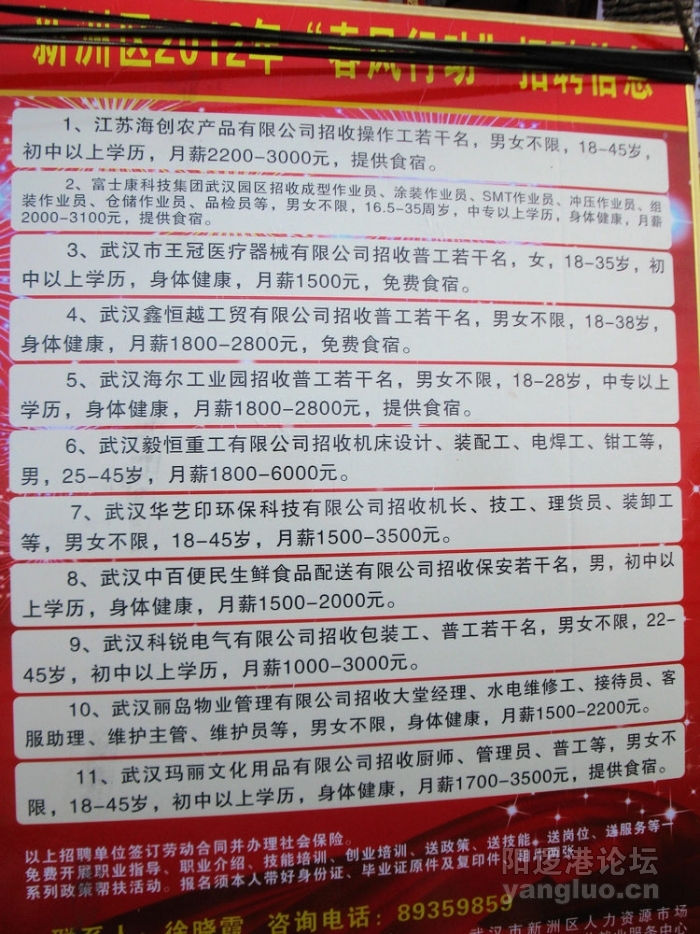 新洲区2012年“春风行动”招聘信息
1、江苏海创农产品有限公司招收操作工若干名，男女不限，18-45岁，
初中以上学历，月薪2200-3000元，提供食宿。
2、富士康科技集团武汉园区招收成型作业员、涂装作业员、SMT作业员、冲压作业员、组
装作业员、仓储作业员、品检员等，男女不限，16.5-35周岁，中专以上学历，身体健康，月薪
2000-3100元，提供食宿。
3、武汉市王冠医疗器械有限公司招收普工若干名，女，18-35岁，初
中以上学历，身体健康，月薪1500元，免费食宿。
4、武汉鑫恒越工贸有限公司招收普工若干名，男女不限，18-38岁，
身体健康，月薪1800-2800元，免费食宿。
5、武汉海尔工业园招收普工若干名，男女不限，18-28岁，中专以上
学历，身体健康，月薪1800-2800元，提供食宿。
6、武汉毅恒重工有限公司招收机床设计、装配工、电焊工、钳工等，
男，25-45岁，月薪1800-6000元。
7、武汉华艺印环保科技有限公司招收机长、技工、理货员、装卸工
等，男女不限，18-45岁，月薪1500-3500元。
8、武汉中百便民生鲜食品配送有限公司招收保安若干名，男，初中以
上学历，身体健康，月薪1500-2000元。
9、武汉科锐电气有限公司招收包装工、普工若干名，男女不限，22-
45岁，初中以上学历，月薪1000-3000元。
10、武汉丽岛物业管理有限公司招收大堂经理、水电维修工、接待员、客
服助理、维护主管、维护员等，男女不限，身体健康，月薪1500-2200元。
11、武汉玛丽文化用品有限公司招收厨师、管理员、普工等，男女不
限，18-45岁，初中以上学历，身体健康，月薪1700-3500元，提供食宿。
以上招聘单位签订劳动合同并办理社会保险。
免费开展职业指导、职业介绍、技能培训、创业培训、送政策、送技能、送岗位、送服务等一
系列政策帮扶活动。报名须本人带好身份证、毕业证原件及复印件、相片四张。
联系人：徐晓霞 咨询电话：89359859
武汉市新洲区人力资源市场
阳逻港论坛
yangluo.cn